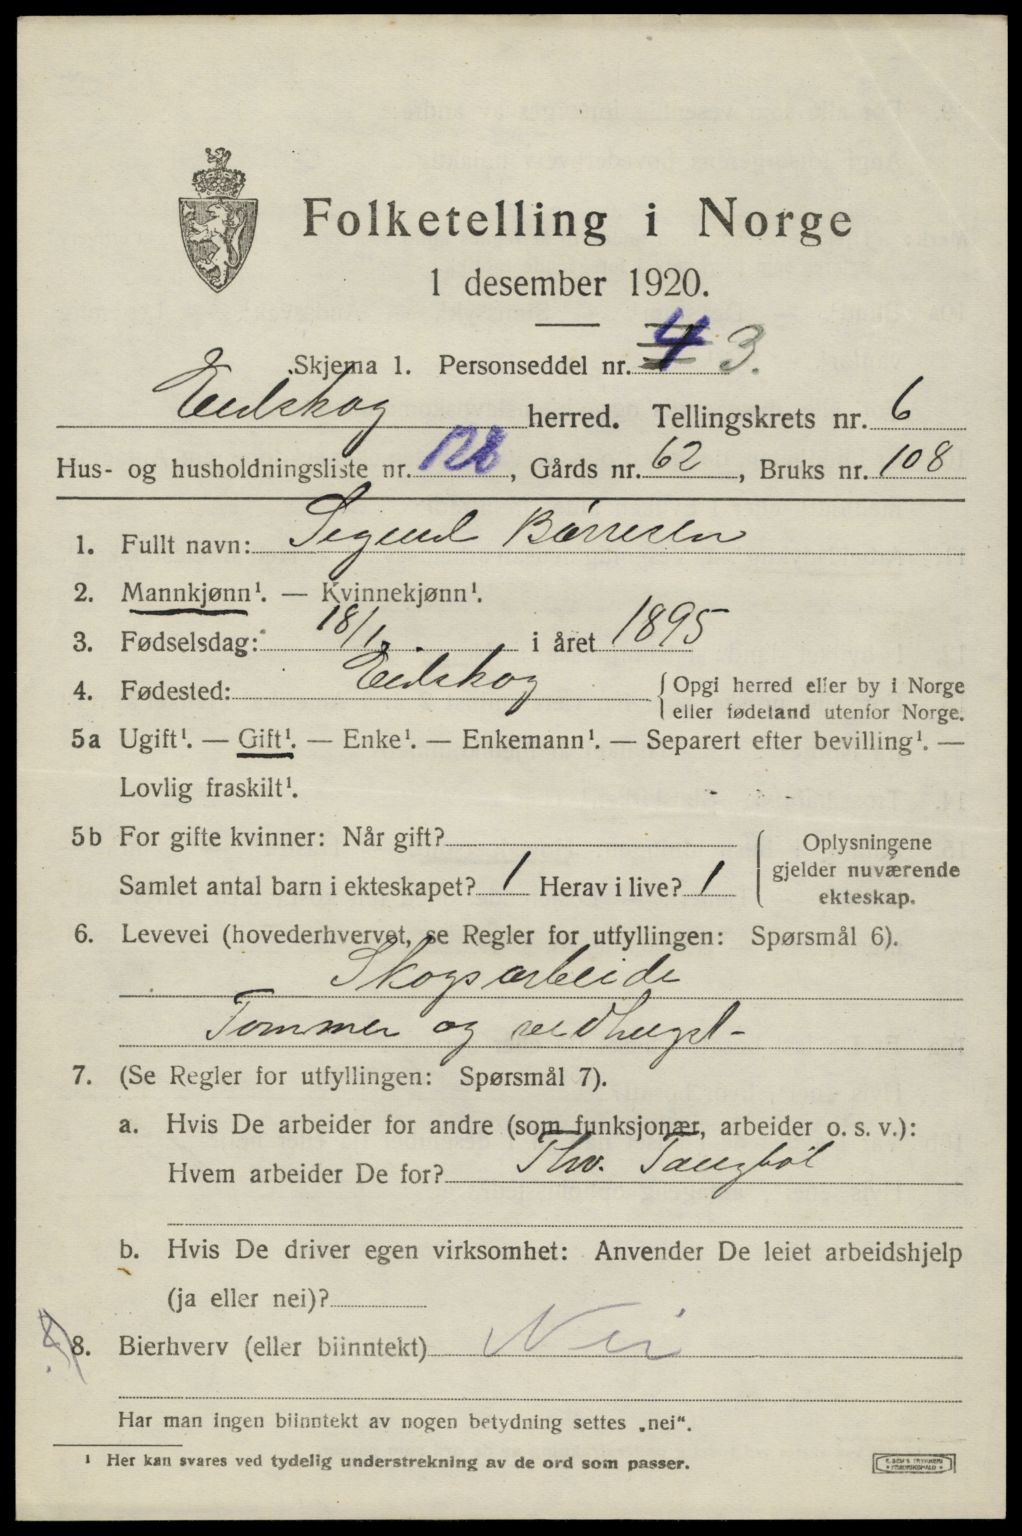 Folketelling i Norge
1 desember 1920.
Skjema 1. Personseddel nr. 4 3.
Eidskog herred. Tellingskrets nr. 6
Hus- og husholdningsliste nr. 128, Gårds nr. 62, Bruks nr. 108
1. Fullt navn: Sigurd Børresen
2. Mannkjønn¹. — Kvinnekjønn¹.
3. Fødselsdag: 18/1. i året 1895
4. Fødested: Eidskog { Opgi herred eller by i Norge
eller fødeland utenfor Norge.
5a Ugift¹. — Gift¹. — Enke¹. — Enkemann¹. — Separert efter bevilling¹. —
Lovlig fraskilt¹.
5b For gifte kvinner: Når gift?
Samlet antal barn i ekteskapet? 1 Herav i live? 1
Oplysningene
gjelder nuværende
ekteskap.
6. Levevei (hovederhvervet, se Regler for utfyllingen: Spørsmål 6).
Skogsarbeide
Tømmer og vedhugst
7. (Se Regler for utfyllingen: Spørsmål 7).
a. Hvis De arbeider for andre (som funksjonær, arbeider o. s. v.):
Hvem arbeider De for? Thv. Taugbøl
b. Hvis De driver egen virksomhet: Anvender De leiet arbeidshjelp
(ja eller nei)?
8. Bierhverv (eller biinntekt) Nei
Har man ingen biinntekt av nogen betydning settes „nei“.
¹ Her kan svares ved tydelig understrekning av de ord som passer.